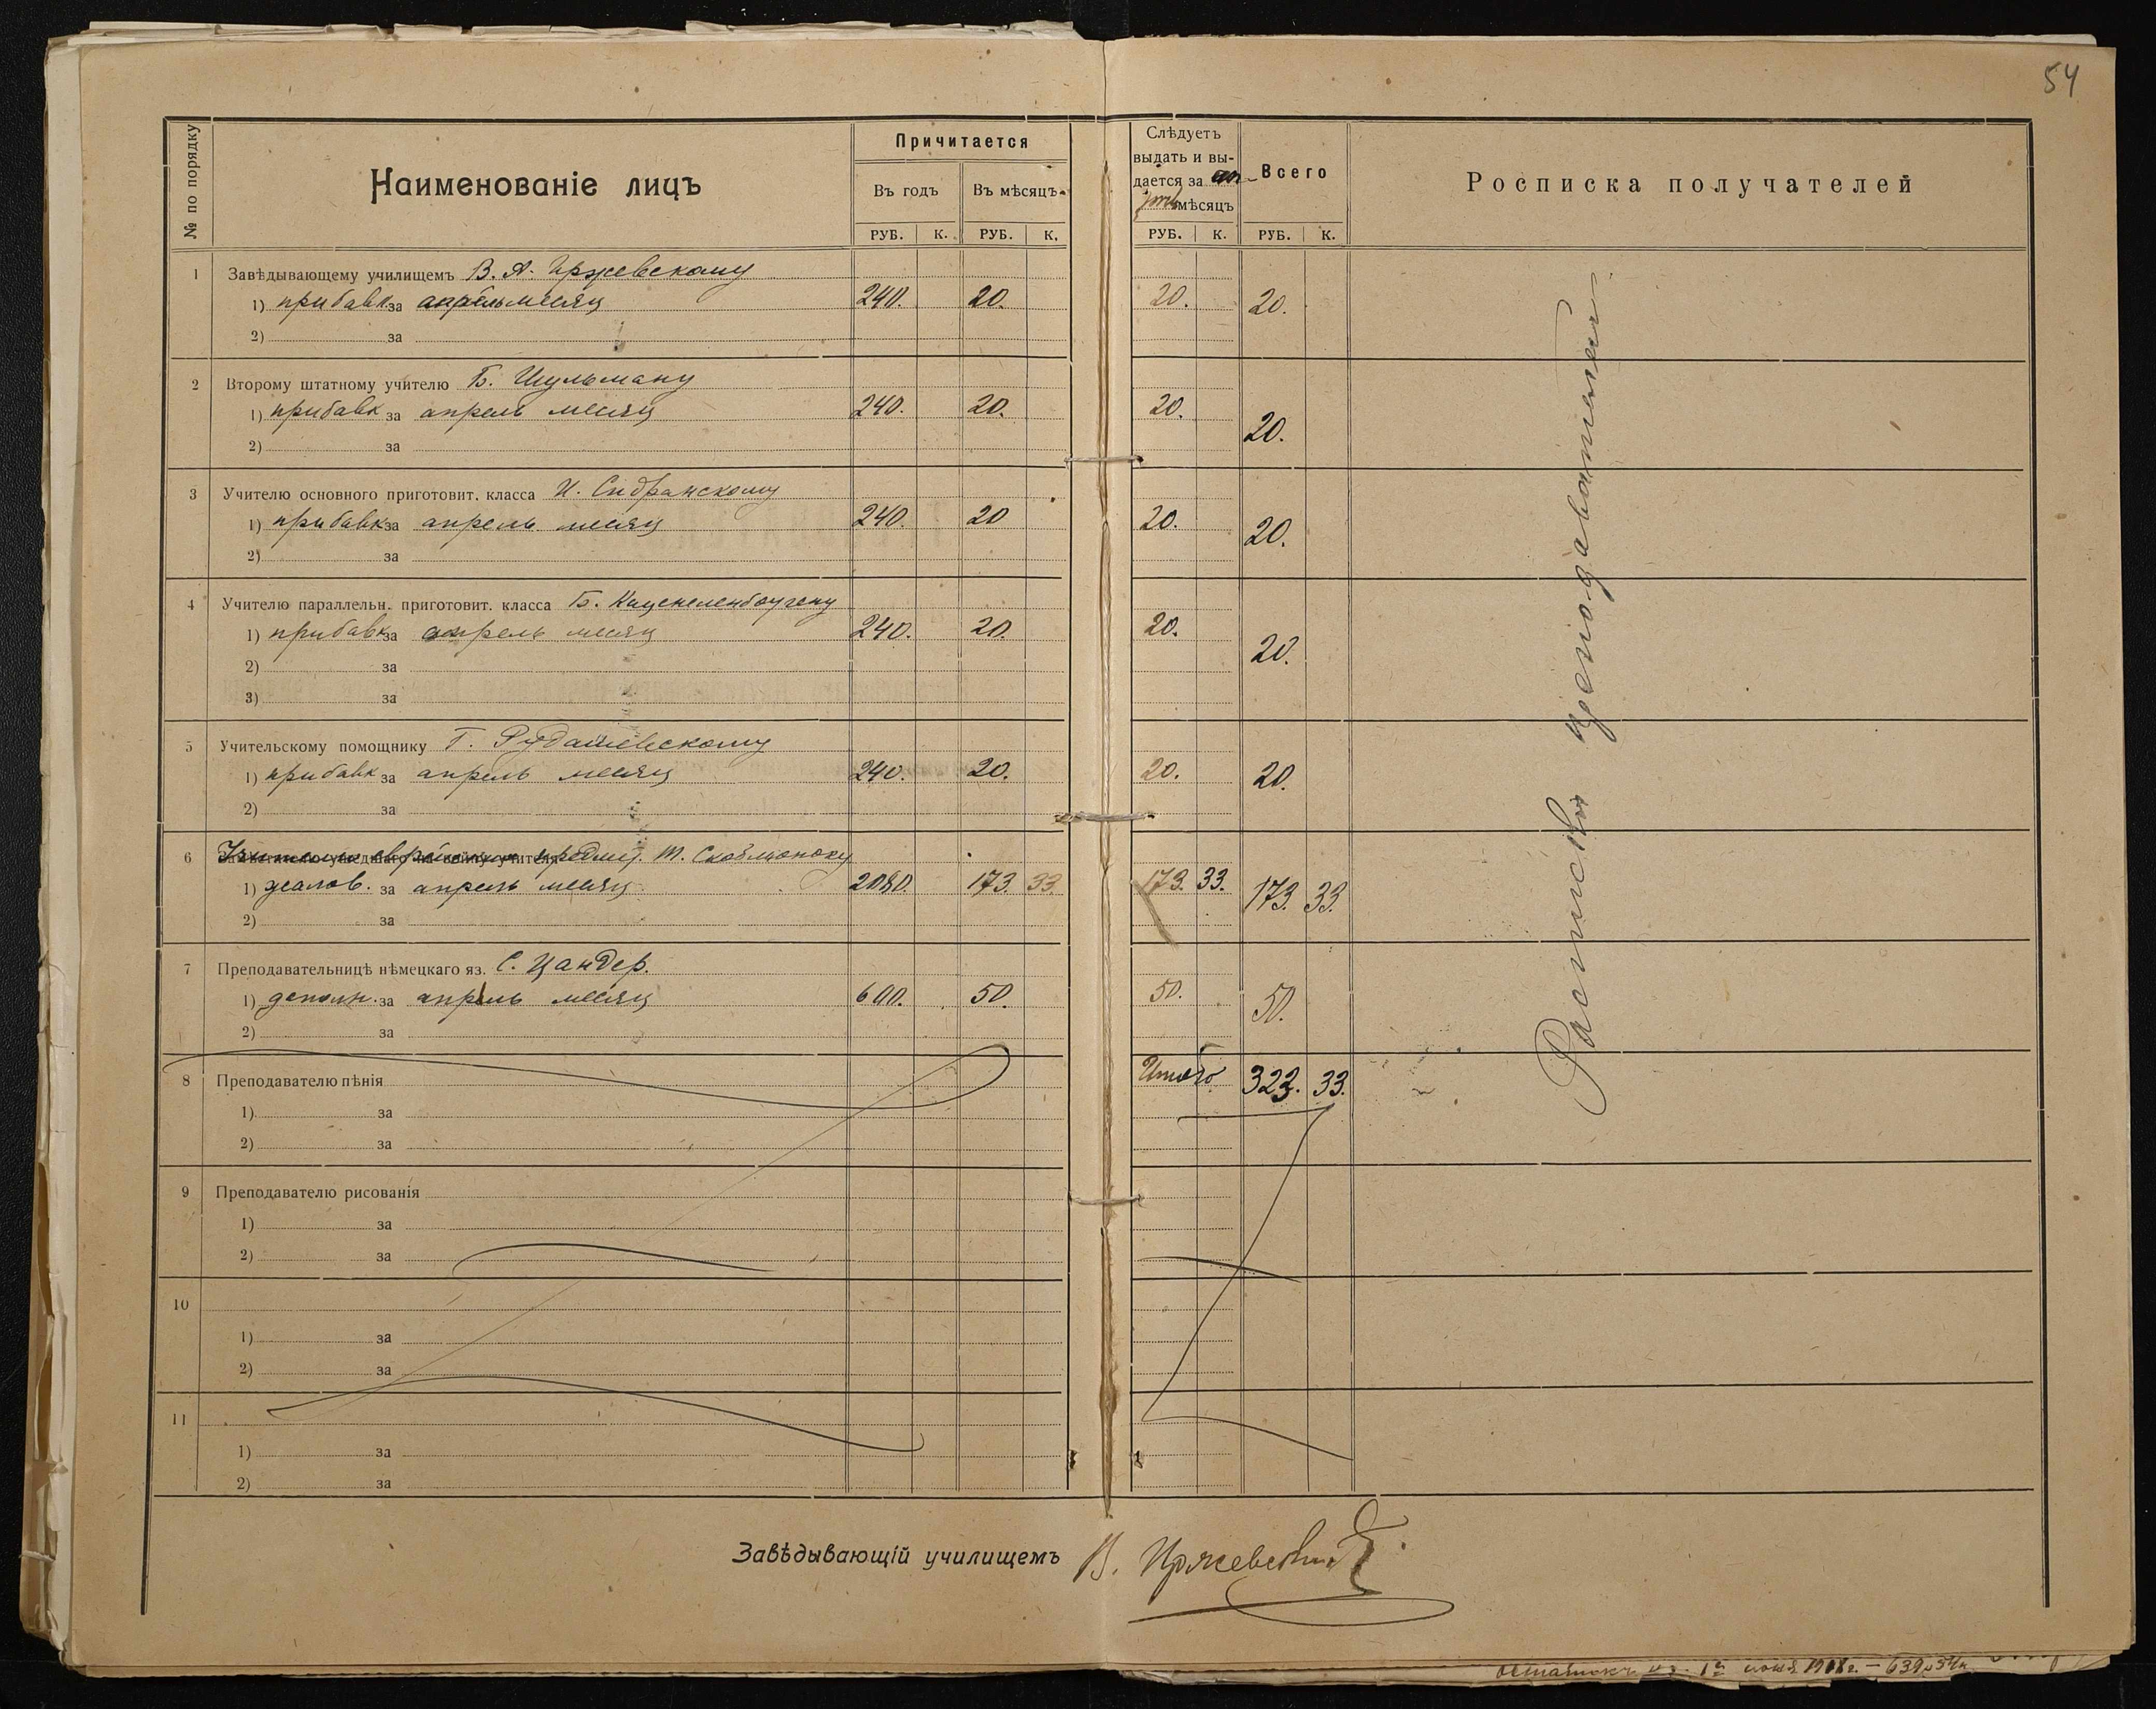 54
№ по порядку
Наименованіе лицъ
Причитается
Въ годъ
Въ мѣсяцъ
РУБ. К. РУБ. К.
Слѣдуетъ
выдать и вы-
дается за ап-
рель мѣсяцъ
Всего
РУБ. К. РУБ. К.
Росписка получателей
1 Завѣдывающему училищемъ В. А. Иржевскому
1) прибавк за апрель месяц 240. 20. 20. 20.
2) за
2 Второму штатному учителю Б. Шульману
1) прибавк за апрель месяц 240. 20. 20. 20.
2) за
3 Учителю основного приготовит. класса И. Сидранскому
1) прибавк за апрель месяц 240. 20 20. 20.
2) за
4 Учителю параллельн. приготовит. класса Б. Каценеленбоугену
1) прибавк за апрель месяц 240. 20. 20. 20.
2) за
3) за
5 Учительскому помощнику Г. Рудашевскому
1) прибавк за апрель месяц 240. 20. 20. 20.
2) за
6 Учителю еврейских предм. М.
1) жалов. за апрель месяц 2080. 173. 33. 173. 33. 173. 33.
2) за
7 Преподавательницѣ нѣмецкаго яз. С. Цандер.
1) дополн. за апрель месяц 600. 50. 50. 50.
2) за
8 Преподавателю пѣнія Итого 323. 33.
1) за
2) за
9 Преподавателю рисованія
1) за
2) за
10
1) за
2) за
11
1) за
2) за
Расписка преподавателей
Завѣдывающій училищемъ В. Иржевский
1918 г. — 639